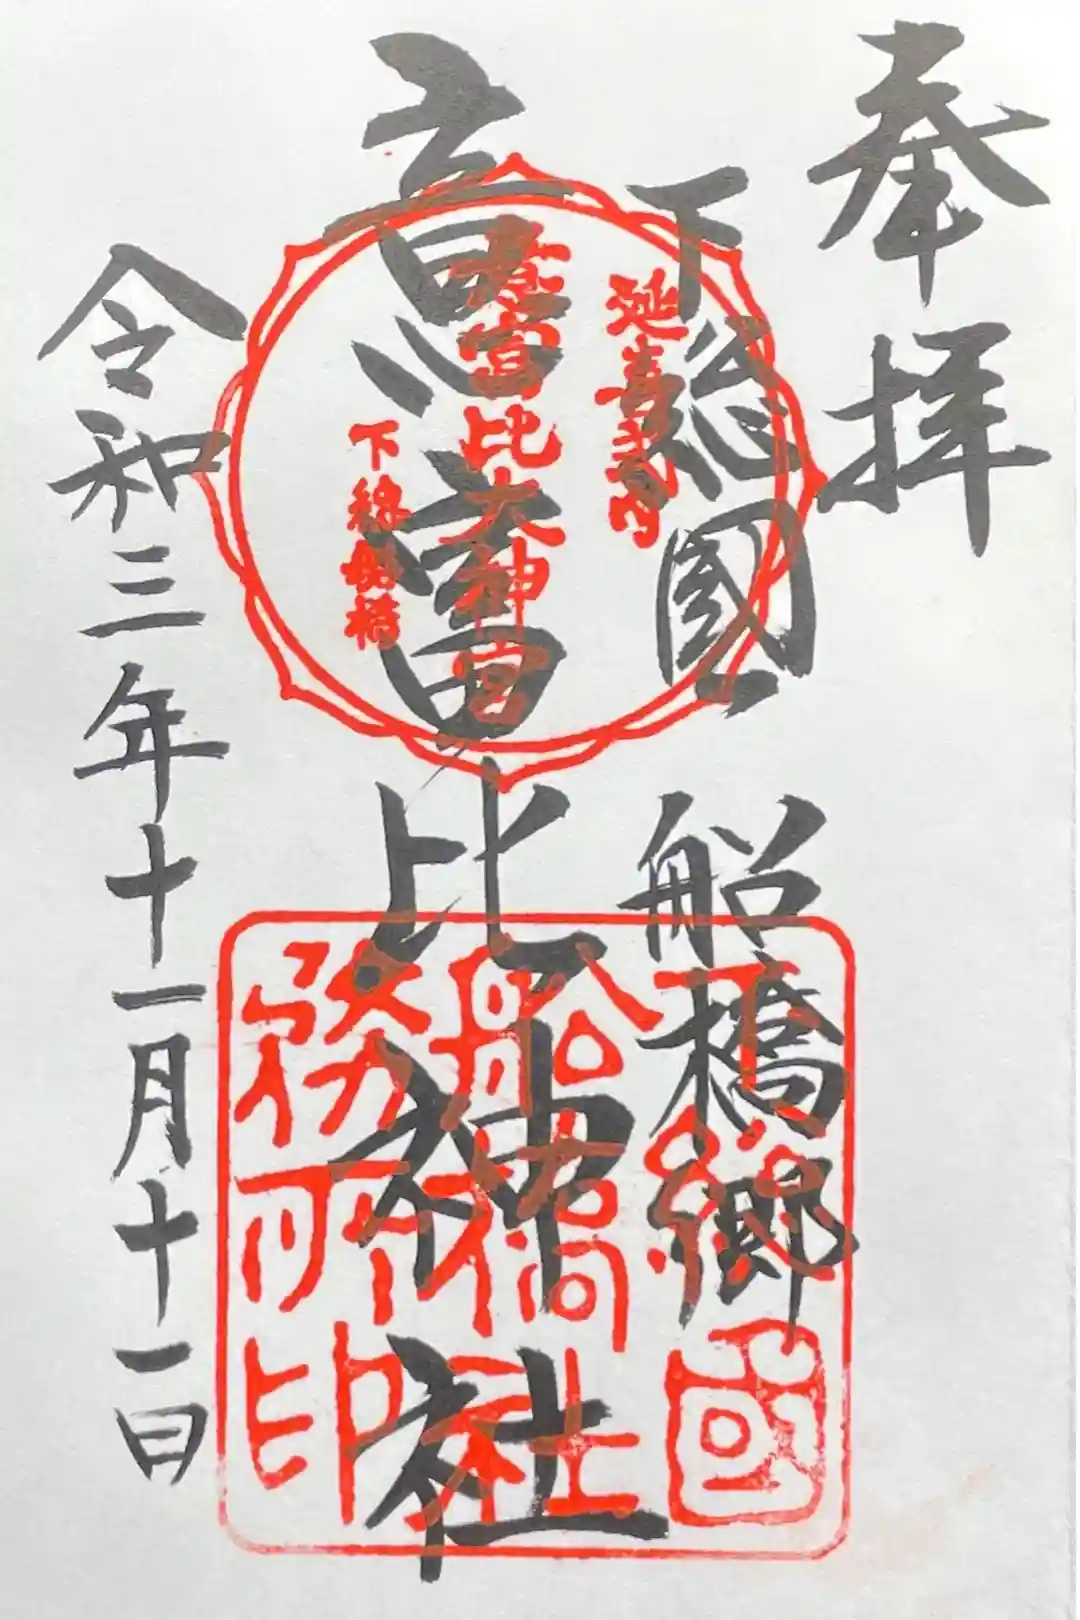 奉拝
下総國一
船橋郷
意富比神社
令和三年十一月十一日
延喜式内
意富比大神宮
下総船橋
下総國
船橋神社
務所印